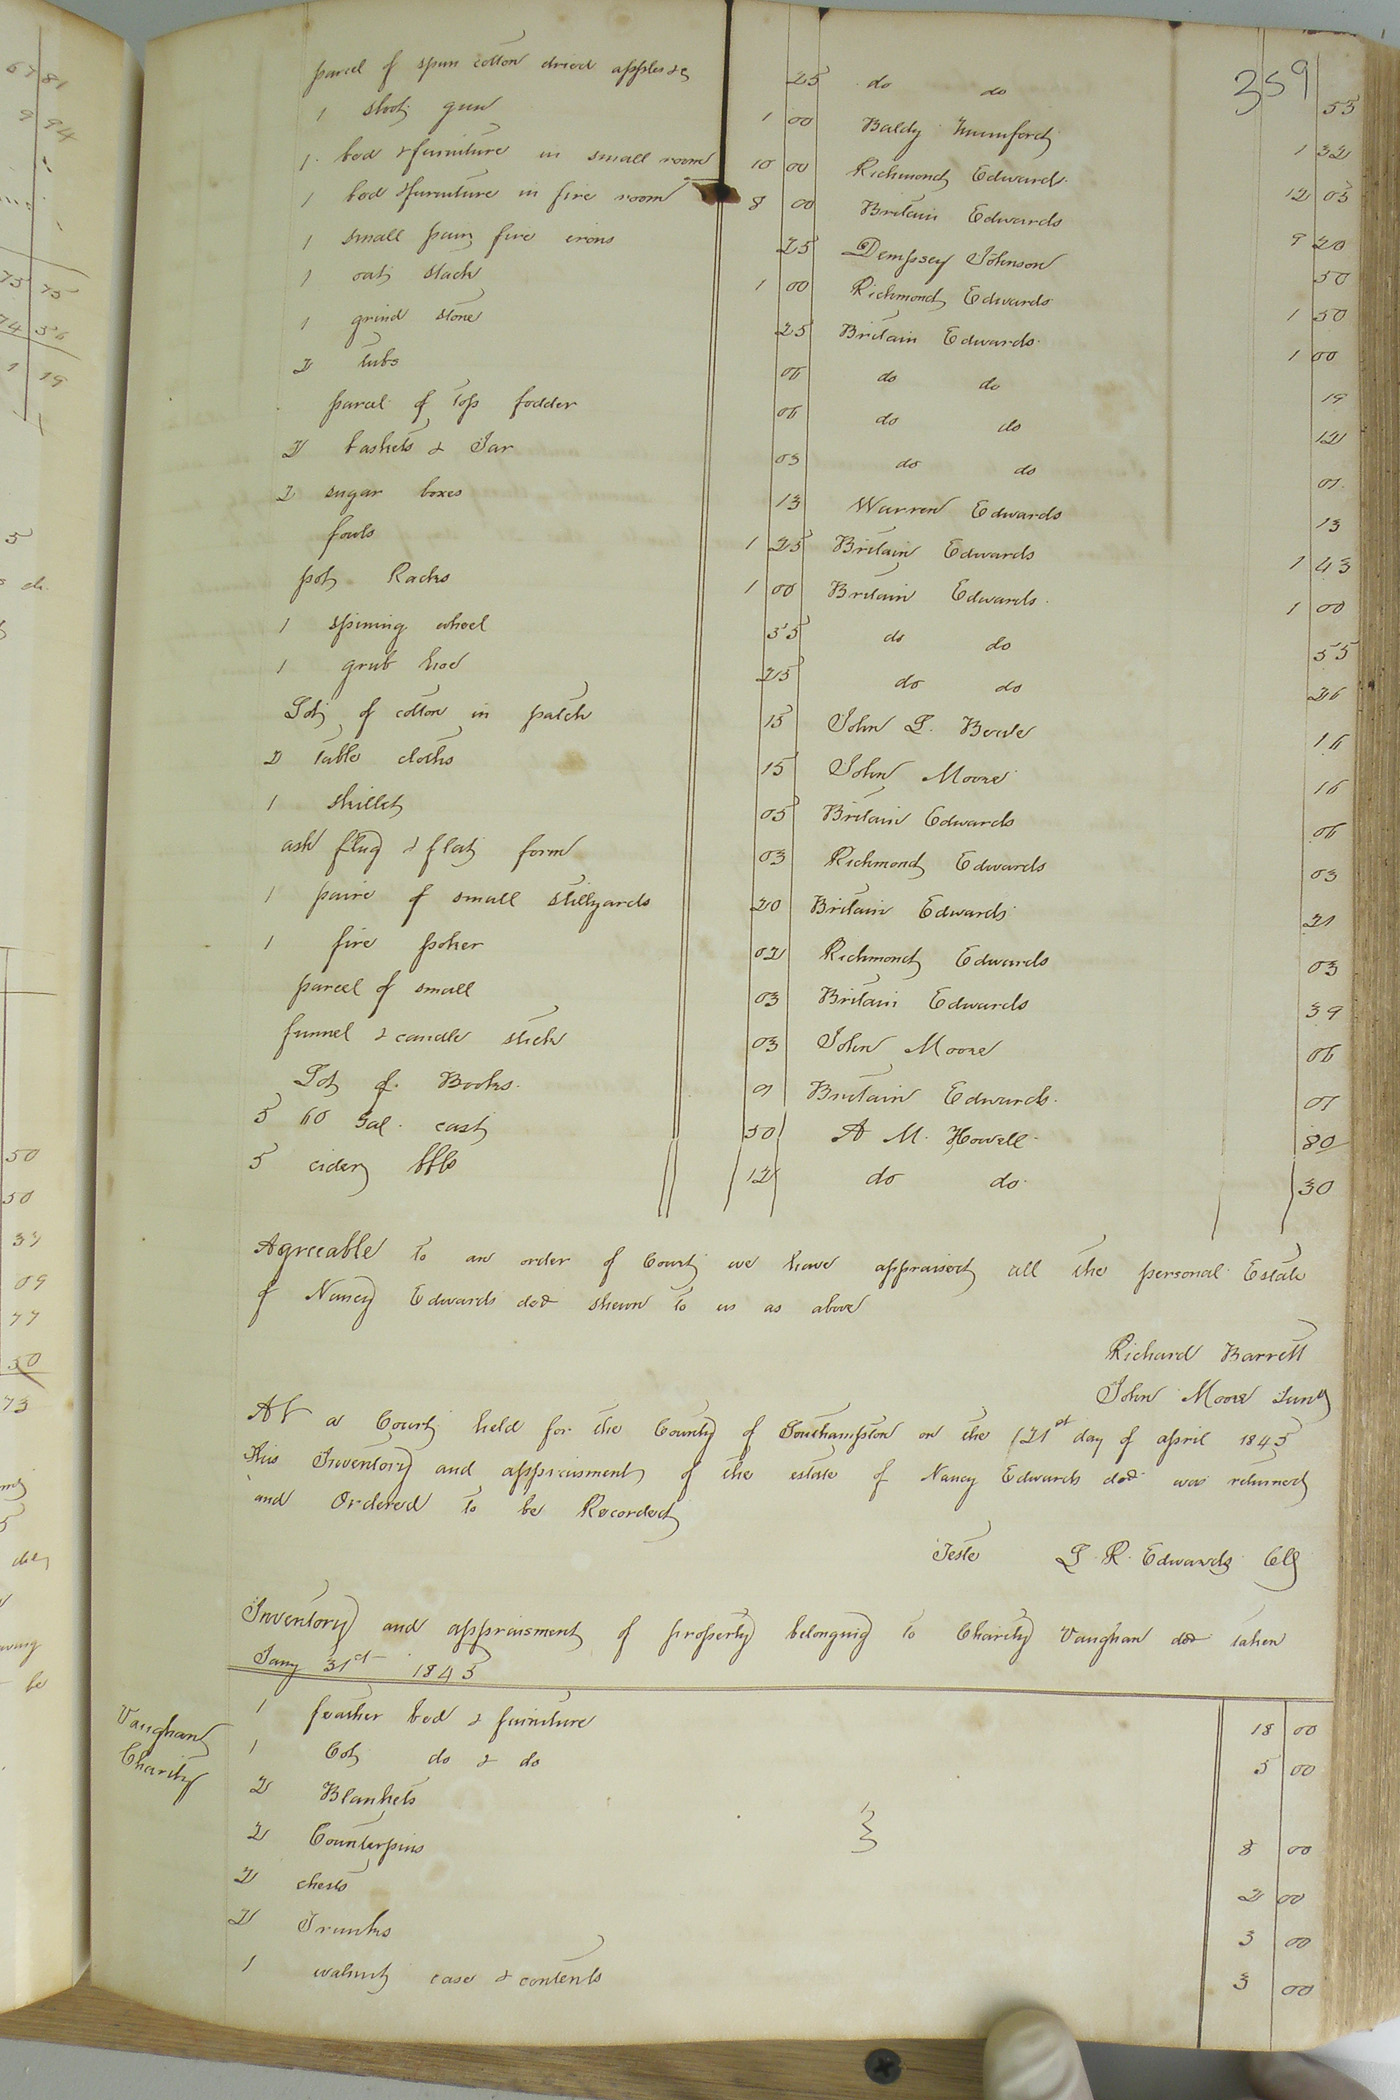 359
parcel of spun cotton dried apples &c 25 do do 55
1 shot gun 1 00 Baldy Mumford 1 32
1 bed & furniture in small room 10 00 Richmond Edwards 12 05
1 bed & furniture in fire room 8 00 Britain Edwards 9 20
1 small pair fire irons 25 Dempsey Johnson 50
1 oat stack 1 00 Richmond Edwards 1 50
1 grind stone 25 Britain Edwards 1 00
2 tubs 06 do do 19
parcel of top fodder 06 do do 12
2 baskets & Jar 03 do do 01
2 sugar boxes 13 Warren Edwards 13
fowls 1 25 Britain Edwards 1 43
pot Racks 1 00 Britain Edwards 1 00
1 spining wheel 35 do do 55
1 grub hoe 25 do do 26
Lot of cotton in patch 15 John L. 16
2 table cloths 15 John Moore 16
1 skillet 05 Britain Edwards 06
ash & flat form 03 Richmond Edwards 03
1 paire of small stillyards 20 Britain Edwards 21
1 fire poker 02 Richmond Edwards 03
parcel of small 03 Britain Edwards 39
funnel & candle stick 03 John Moore 06
Lot of Books 01 Britain Edwards 01
5 60 Gal. cast 50 A M. Howell 80
5 cider bbls 12 do do 30
Agreeable to an order of Court we have appraised all the personal Estate
of Nancy Edwards decd shewn to us as above
Richard Barrett
John Moore Junr
At a Court held for the County of Southampton on the 21st day of april 1845
this Inventory and appraisment of the estate of Nancy Edwards decd was returned
and Ordered to be Recorded
Teste L. R. Edwards Clk
Inventory and appraisment of property belonging to Charity Vaughan decd taken
Jany 31st 1845
Vaughan
Charity
1 feather bed & furniture 18 00
1 Cot do & do 5 00
2 Blankets
2 Counterpins 8 00
2 chests 2 00
2 Trunks 3 00
1 walnut case & contents 3 00